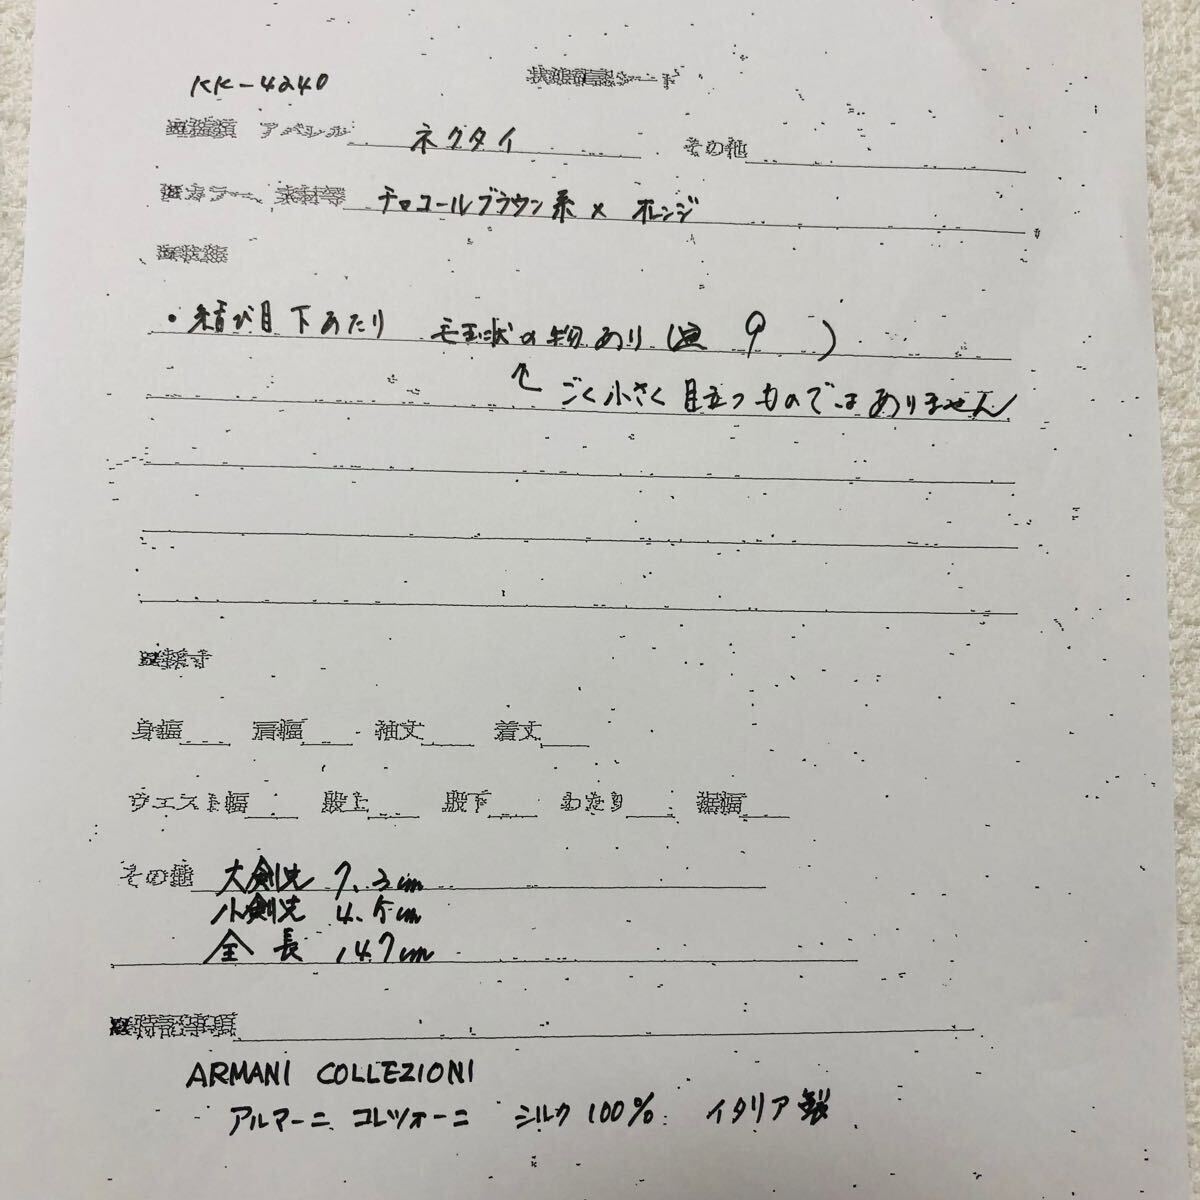 KK-4240
状態確認シート
※種類 アパレル ネクタイ その他
※カラー、素材等 チョコールブラウン系 × オレンジ
※状態
・結び目下あたり 毛玉状の物あり( 9 )
↑ ごく小さく目立つものではありません
※採寸
身幅 肩幅 袖丈 着丈
ウエスト幅 股上 股下 わたり 裾幅
その他 大剣先 7.3cm
小剣先 4.5cm
全長 147cm
※特記事項
ARMANI COLLEZIONI
アルマーニ コレツォーニ シルク100% イタリア製